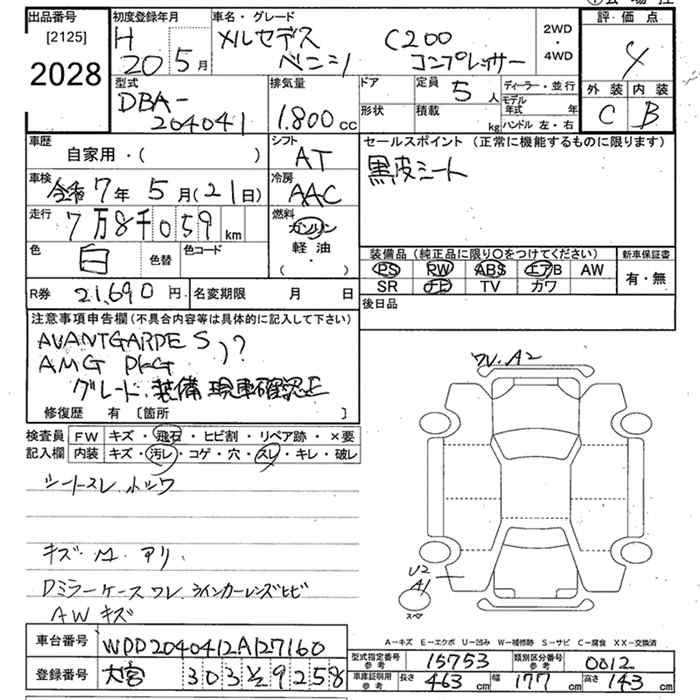 出品番号
[2125]
2028
初度登録年月
H 20 5月
車名・グレード
メルセデス ベンツ C200 コンプレッサー
2WD
・
4WD
評価点
4
外装 内装
C B
型式
DBA-204041
排気量
1.800cc
ドア
形状
定員 5人
積載 kg
ディーラー・並行
モデル年式 年
ハンドル 左・右
車歴
自家用・( )
シフト
AT
車検
令和7年5月(21日)
冷房
AAC
走行
7万8千059km
燃料
ガソリン
軽油
( )
色
白
色替
色コード
セールスポイント(正常に機能するものに限ります)
黒皮シート
装備品(純正品に限り○をつけてください)
PS PW ABS エアB AW
SR ナビ TV カワ
新車保証書
有・無
R券 21,690円
名変期限 月 日
後日品
注意事項申告欄(不具合内容等は具体的に記入して下さい)
AVANTGARDE S
AMG PKG
)?
グレード・装備 現車確認正
修復歴 有 [箇所 ]
検査員
記入欄
FW キズ・飛石・ヒビ割・リペア跡・×要
内装 キズ・汚レ・コゲ・穴・スレ・キレ・破レ
シートスレ.
キズ.M.アリ
Dミラーケースワレ.ウインカーレンズヒビ
AW キズ
ワレ.A2
U2
A1
スペア
A-キズ E-エクボ U-凹み W-補修跡 S-サビ C-腐食 XX-交換済
車台番号 WDD2040412A127160
登録番号 大宮 303 9258
型式指定番号
参考
15753
類別区分番号
参考
0012
車庫証明用
参考
長さ 463cm 幅 177cm 高さ 143cm